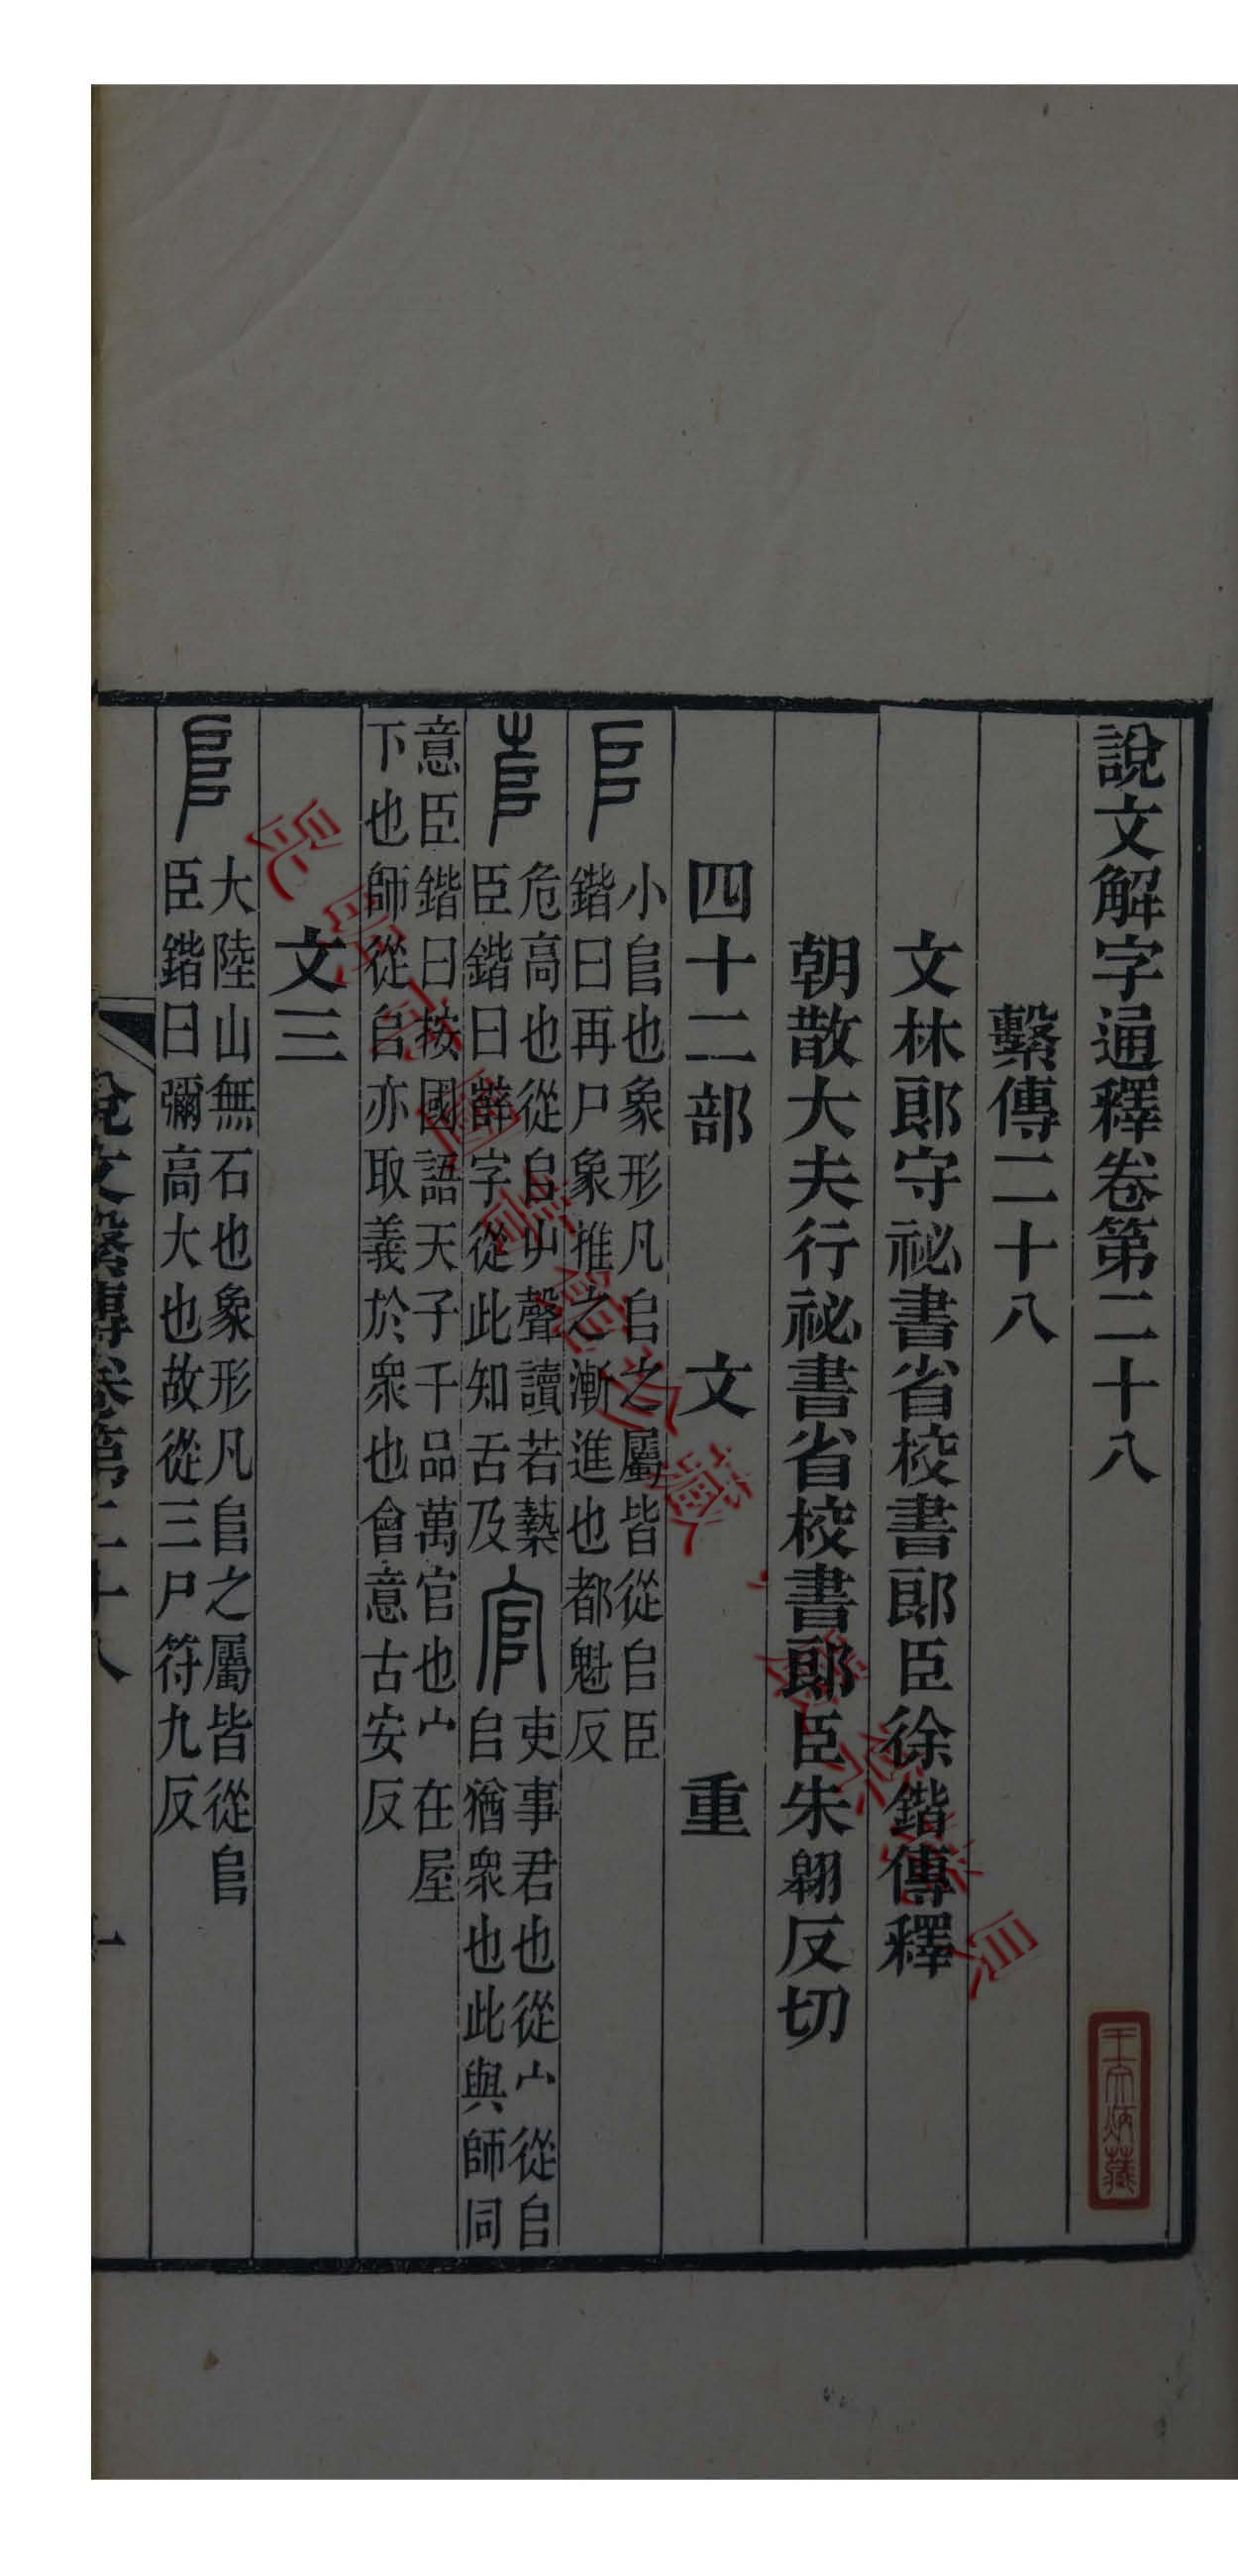 說文解字通釋卷第二十八
繫傳二十八
文林郎守祕書省校書郎臣徐鍇傳釋
朝散大夫行祕書省校書郎臣朱翶反切
四十二部 文 重
𠂤 小𨸏也象形凡𠂤之屬皆從𠂤臣
鍇曰再尸象推之漸進也都魁反
危高也從𠂤屮聲讀若蓺
臣鍇曰辥字從此知舌及
官 吏事君也從宀從𠂤
𠂤猶衆也此與師同
意臣鍇曰按國語天子千品萬官也宀在屋
下也師從𠂤亦取義於衆也會意古安反
文三
𨸏 大陸山無石也象形凡𨸏之屬皆從𨸏
臣鍇曰彌高大也故從三尸符九反
說文繫傳卷第二十八 一